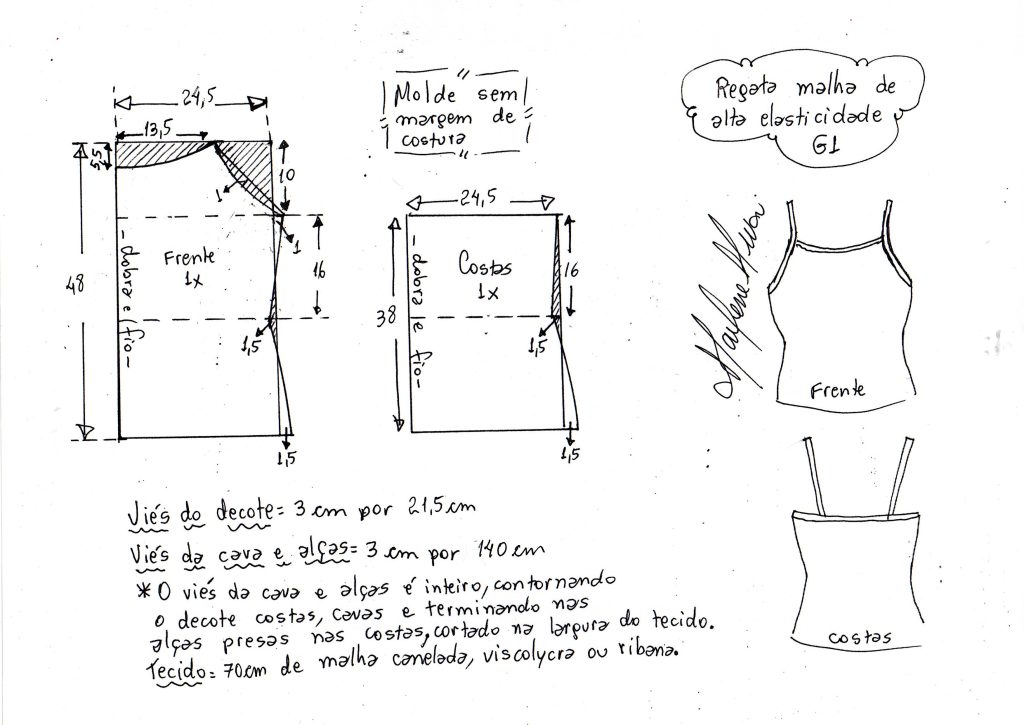 Regata malha de
alta elasticidade
G1
Molde sem
margem de
costura
24,5
13,5
5,5
10
1
1
48
-dobra e fio-
Frente
1x
16
1,5
1,5
24,5
38
-dobra e fio-
Costas
1x
16
1,5
1,5
Marlene Mukai
Frente
costas
Viés do decote = 3 cm por 21,5 cm
Viés da cava e alças = 3 cm por 140 cm
* O viés da cava e alças é inteiro, contornando
o decote costas, cavas e terminando nas
alças presas nas costas, cortado na largura do tecido.
Tecido = 70cm de malha canelada, viscolycra ou ribana.